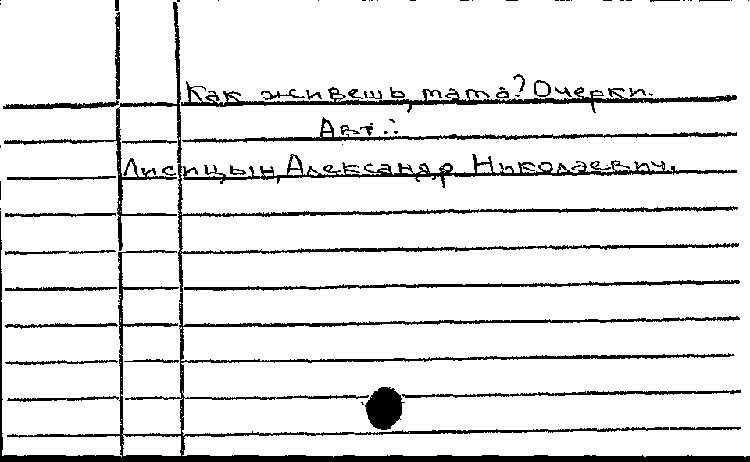 Как живешь, мама? Очерки.
Авт.:
Лисицын, Александр Николаевич.